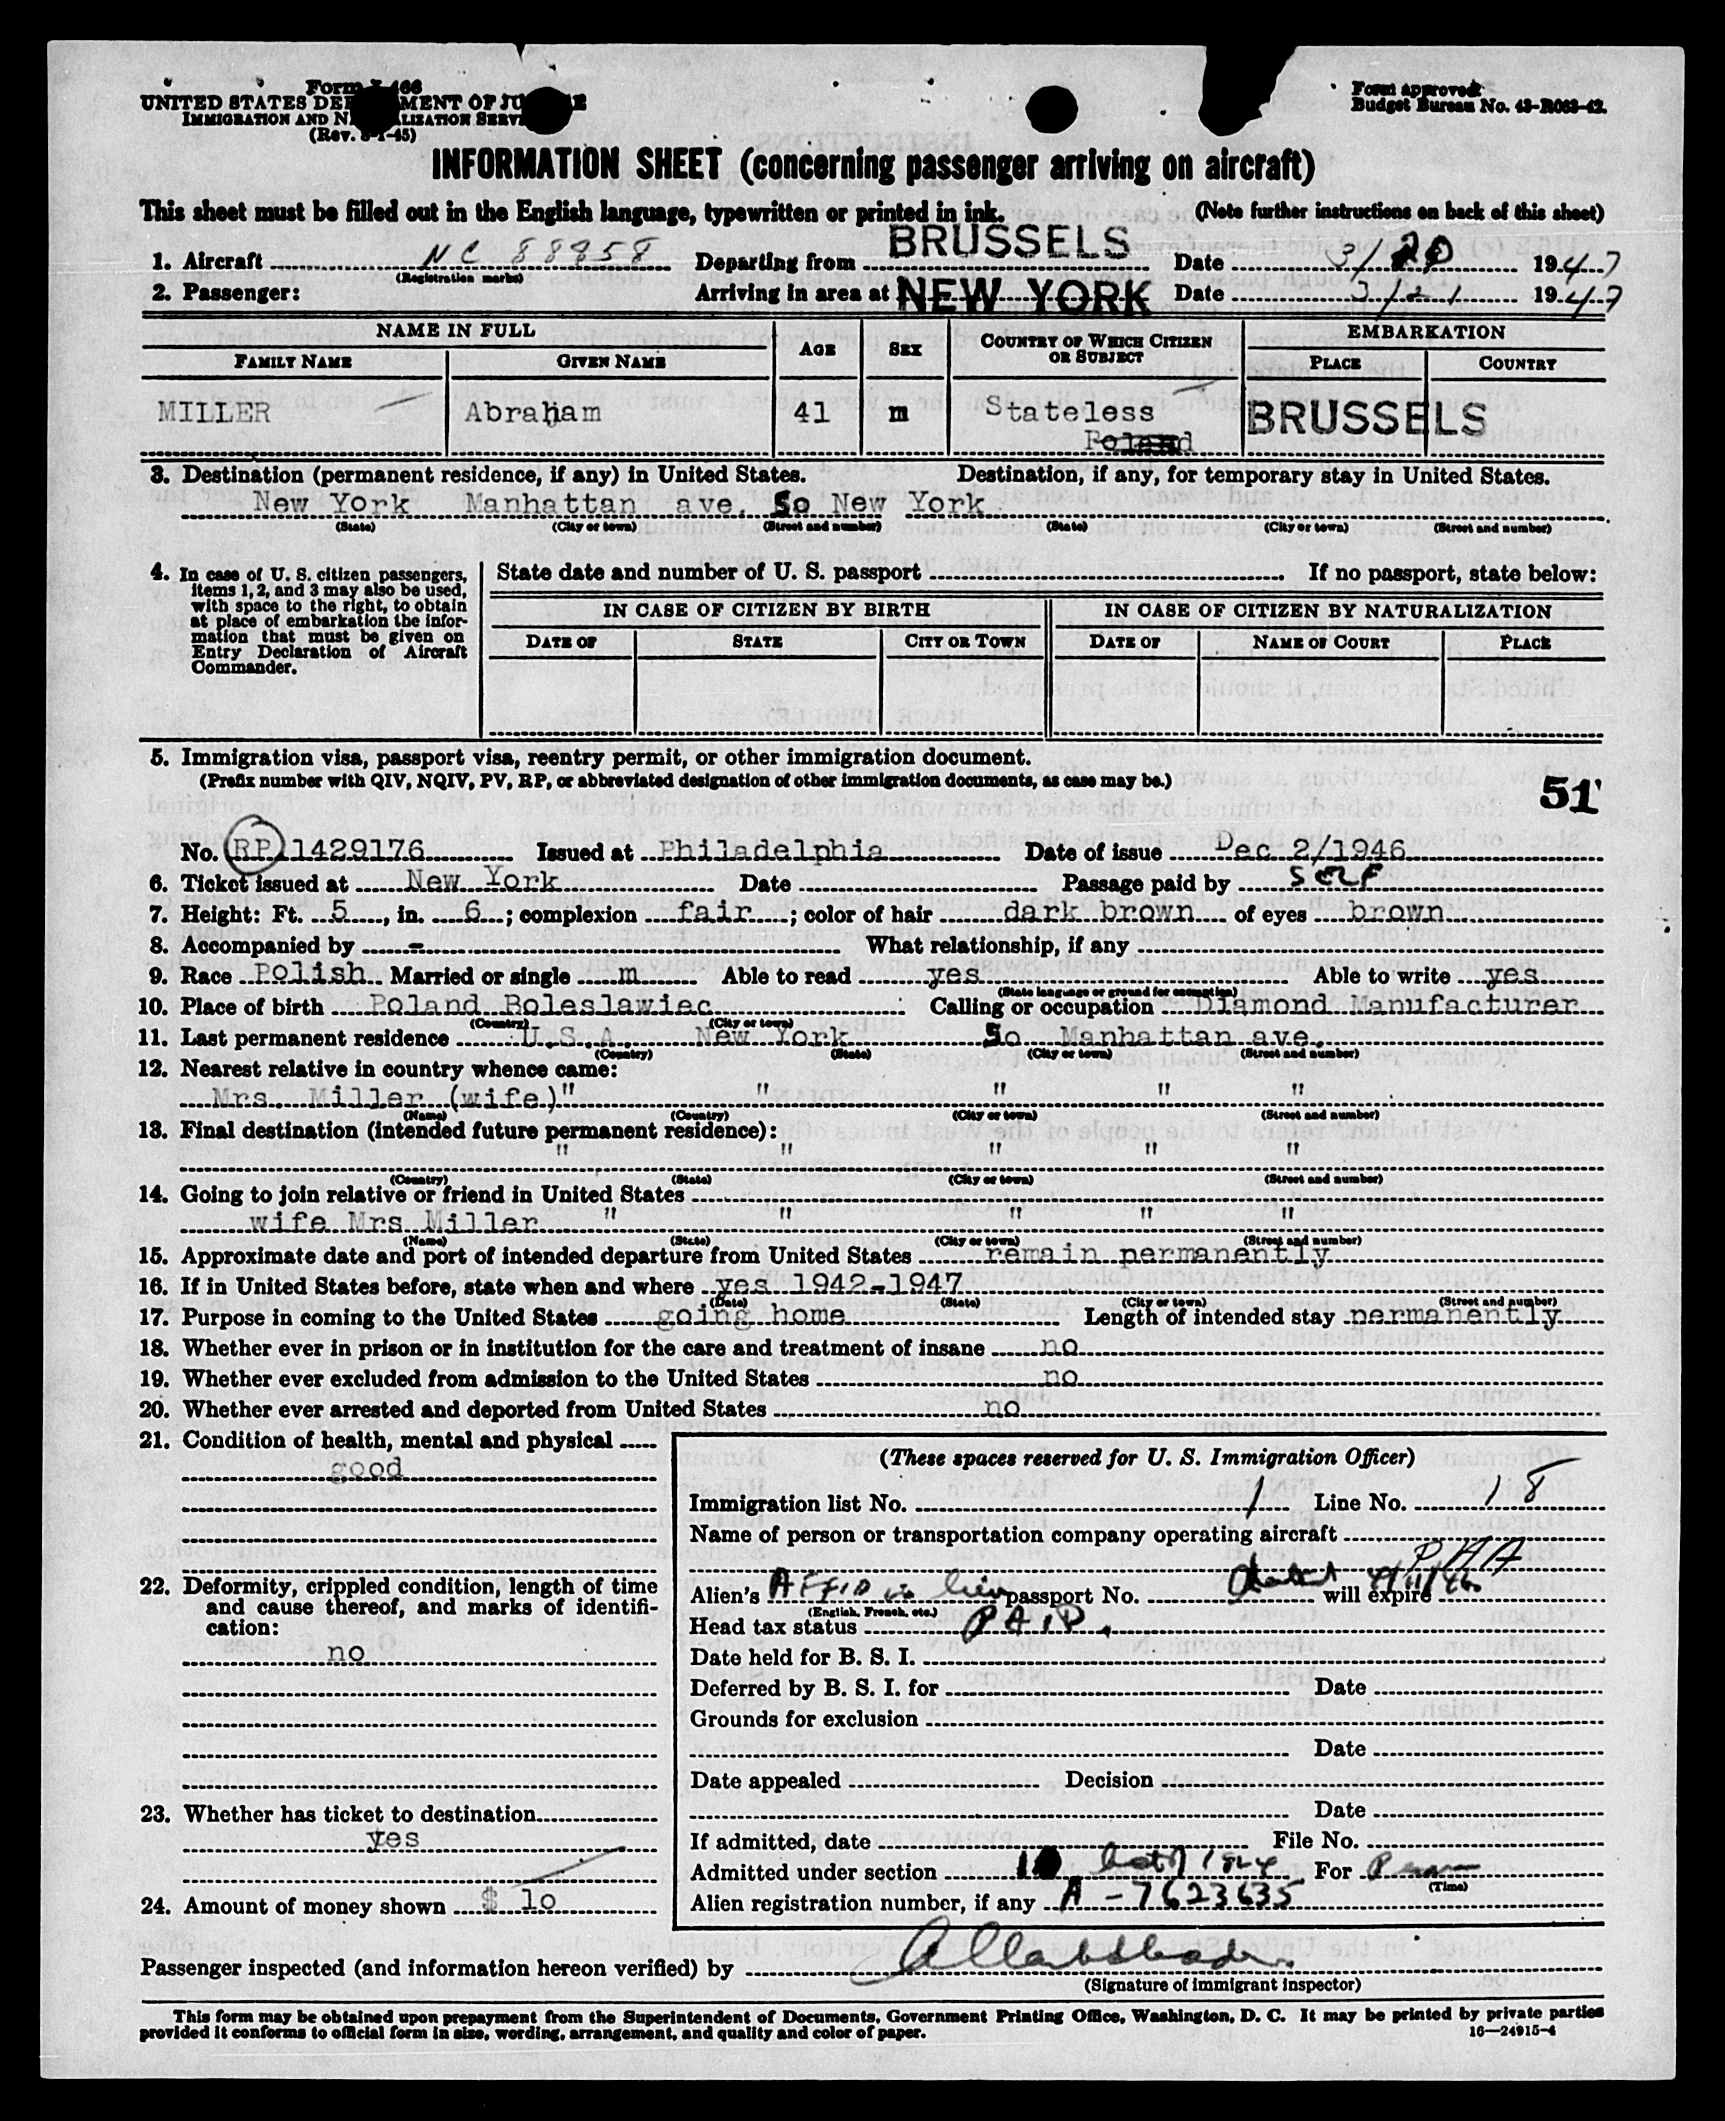 Form I-466
UNITED STATES DEPARTMENT OF JUSTICE
IMMIGRATION AND NATURALIZATION SERVICE
(Rev. 8-1-45)
Form approved
Budget Bureau No. 43-R063-42.
INFORMATION SHEET (concerning passenger arriving on aircraft)
This sheet must be filled out in the English language, typewritten or printed in ink. (Note further instructions on back of this sheet)
1. Aircraft NC 88958 Departing from BRUSSELS Date 3/20 1947
(Registration marks)
2. Passenger: Arriving in area at NEW YORK Date 3/21 1947
NAME IN FULL AGE SEX COUNTRY OF WHICH CITIZEN OR SUBJECT EMBARKATION
FAMILY NAME GIVEN NAME PLACE COUNTRY
MILLER Abraham 41 m Stateless BRUSSELS
Poland
3. Destination (permanent residence, if any) in United States. Destination, if any, for temporary stay in United States.
New York Manhattan ave. So New York
(State) (City or town) (Street and number) (State) (City or town) (Street and number)
4. In case of U. S. citizen passengers, items 1, 2, and 3 may also be used, with space to the right, to obtain at place of embarkation the information that must be given on Entry Declaration of Aircraft Commander.
State date and number of U. S. passport If no passport, state below:
IN CASE OF CITIZEN BY BIRTH IN CASE OF CITIZEN BY NATURALIZATION
DATE OF STATE CITY OR TOWN DATE OF NAME OF COURT PLACE
5. Immigration visa, passport visa, reentry permit, or other immigration document.
(Prefix number with QIV, NQIV, PV, RP, or abbreviated designation of other immigration documents, as case may be.)
51
No. RP 1429176 Issued at Philadelphia Date of issue Dec 2/1946
6. Ticket issued at New York Date Passage paid by SELF
7. Height: Ft. 5, in. 6; complexion fair; color of hair dark brown of eyes brown
8. Accompanied by - What relationship, if any
9. Race Polish Married or single m Able to read yes Able to write yes
(State language or ground for exemption)
10. Place of birth Poland Boleslawiec Calling or occupation Diamond Manufacturer
(Country) (City or town)
11. Last permanent residence U.S.A. New York So Manhattan ave.
(Country) (State) (City or town) (Street and number)
12. Nearest relative in country whence came:
Mrs. Miller (wife)" " " " "
(Name) (Country) (City or town) (Street and number)
13. Final destination (intended future permanent residence):
" " " " "
(Country) (State) (City or town) (Street and number)
14. Going to join relative or friend in United States
wife Mrs Miller " " " " "
(Name) (State) (City or town) (Street and number)
15. Approximate date and port of intended departure from United States remain permanently
16. If in United States before, state when and where yes 1942-1947
(Date) (State) (City or town) (Street and number)
17. Purpose in coming to the United States going home Length of intended stay permanently
18. Whether ever in prison or in institution for the care and treatment of insane no
19. Whether ever excluded from admission to the United States no
20. Whether ever arrested and deported from United States no
21. Condition of health, mental and physical
good
22. Deformity, crippled condition, length of time and cause thereof, and marks of identification:
no
23. Whether has ticket to destination
yes
24. Amount of money shown $ 10
(These spaces reserved for U. S. Immigration Officer)
Immigration list No. 1 Line No. 18
Name of person or transportation company operating aircraft
PAA
Alien's AFFID in lieu passport No. dated will expire 4/11/46
(English, French, etc.)
Head tax status PAID.
Date held for B. S. I.
Deferred by B. S. I. for Date
Grounds for exclusion
Date
Date appealed Decision
Date
If admitted, date File No.
Admitted under section act of 1924 For Perm
(Time)
Alien registration number, if any A-7623635
Passenger inspected (and information hereon verified) by
(Signature of immigrant inspector)
This form may be obtained upon prepayment from the Superintendent of Documents, Government Printing Office, Washington, D. C. It may be printed by private parties
provided it conforms to official form in size, wording, arrangement, and quality and color of paper.
16—24915-4